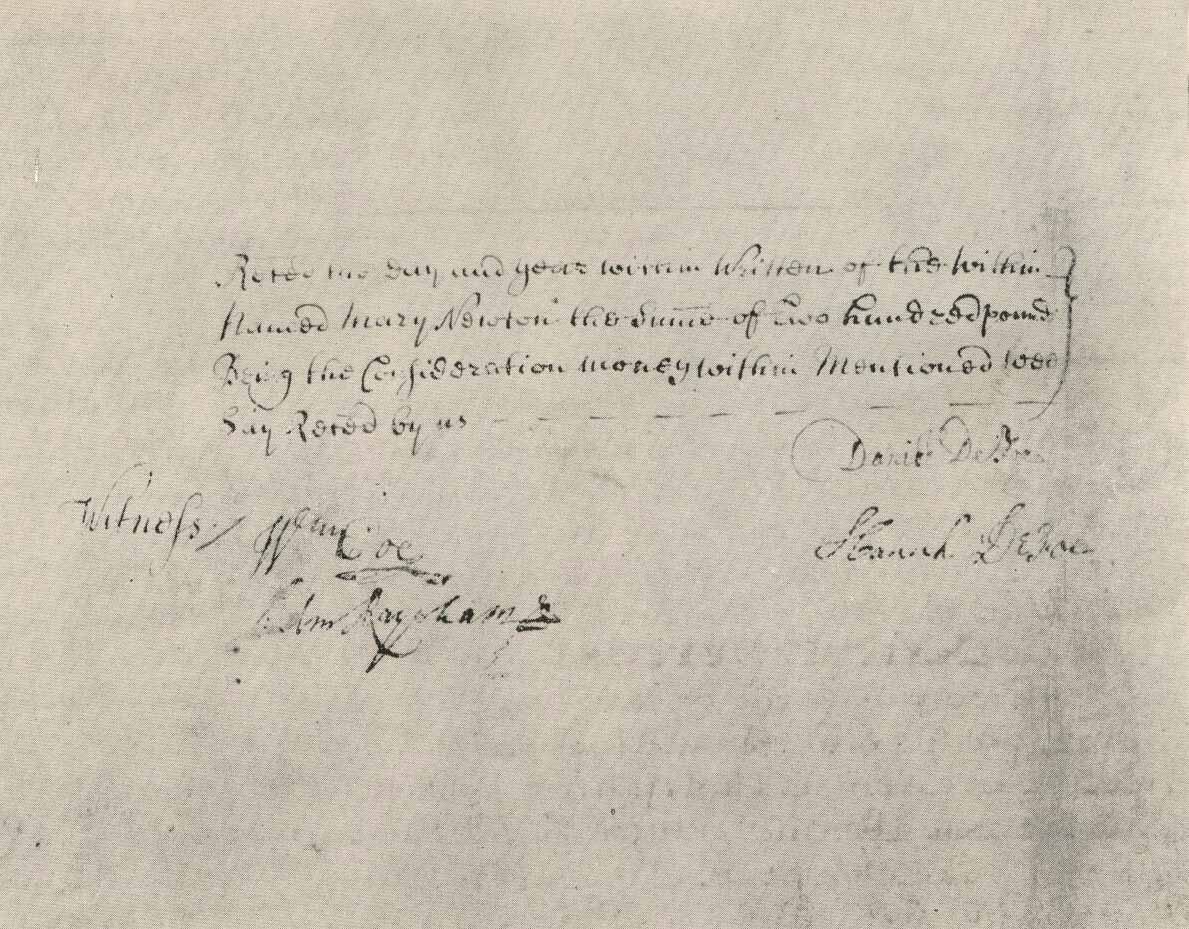 Reced the day and year within Written of the within
Named Mary Newton the Summe of Two hundred pound
Being the Consideration money within Mentioned Wee
Say Reced by us
Daniel De Foe
Hannah DeFoe
Witness / Wm Coe